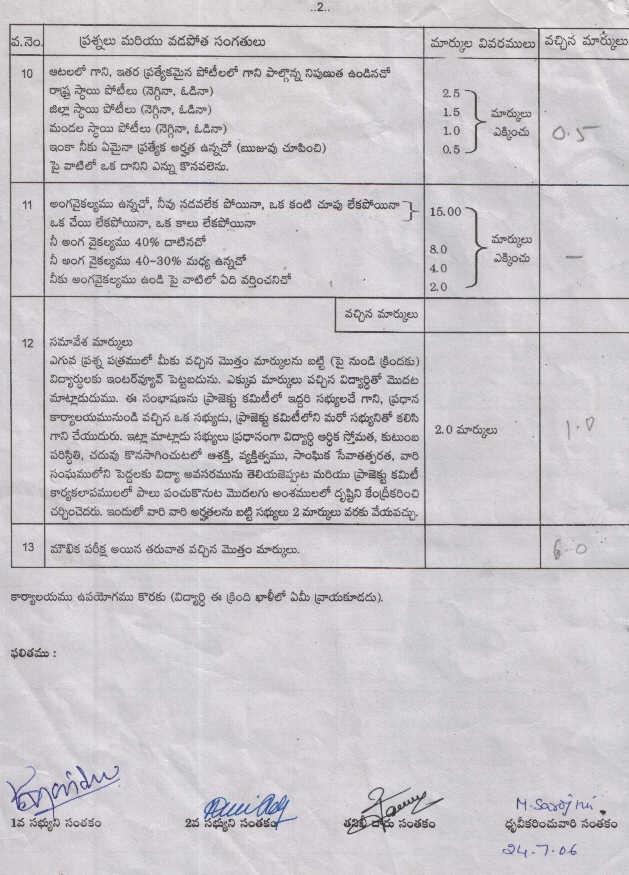 ..2..
వ.నెం. ప్రశ్నలు మరియు వడపోత సంగతులు మార్కుల వివరములు వచ్చిన మార్కులు
10 ఆటలలో గాని, ఇతర ప్రత్యేకమైన పోటీలలో గాని పాల్గొన్న నిపుణుత ఉండినచో
రాష్ట్ర స్థాయి పోటీలు (నెగ్గినా, ఓడినా) 2.5
జిల్లా స్థాయి పోటీలు (నెగ్గినా, ఓడినా) 1.5 మార్కులు
మండల స్థాయి పోటీలు (నెగ్గినా, ఓడినా) 1.0 ఎక్కించు 0.5
ఇంకా నీకు ఏమైనా ప్రత్యేక అర్హత ఉన్నచో (ఋజువు చూపించి) 0.5
పై వాటిలో ఒక దానిని ఎన్ను కొనవలెను.
11 అంగవైకల్యము ఉన్నచో, నీవు నడవలేక పోయినా, ఒక కంటి చూపు లేకపోయినా 15.00
ఒక చేయి లేకపోయినా, ఒక కాలు లేకపోయినా
నీ అంగ వైకల్యము 40% దాటినచో 8.0 మార్కులు
నీ అంగ వైకల్యము 40-30% మధ్య ఉన్నచో 4.0 ఎక్కించు –
నీకు అంగవైకల్యము ఉండి పై వాటిలో ఏది వర్తించనిచో 2.0
వచ్చిన మార్కులు
12 సమావేశ మార్కులు
ఎగువ ప్రశ్న పత్రములో మీకు వచ్చిన మొత్తం మార్కులను బట్టి (పై నుండి క్రిందకు)
విద్యార్థులకు ఇంటర్‌వ్యూవ్ పెట్టబడును. ఎక్కువ మార్కులు వచ్చిన విద్యార్థితో మొదట
మాట్లాడుదుము. ఈ సంభాషణను ప్రాజెక్టు కమిటీలో ఇద్దరి సభ్యులచే గాని, ప్రధాన
కార్యాలయమునుండి వచ్చిన ఒక సభ్యుడు, ప్రాజెక్టు కమిటీలోని మరో సభ్యునితో కలిసి
గాని చేయుదురు. ఇట్లా మాట్లాడు సభ్యులు ప్రధానంగా విద్యార్థి ఆర్థిక స్తోమత, కుటుంబ 2.0 మార్కులు 1.0
పరిస్థితి, చదువు కొనసాగించుటలో ఆశక్తి, వ్యక్తిత్వము, సాంఘిక సేవాతత్పరత, వారి
సంఘములోని పెద్దలకు విద్యా అవసరమును తెలియజెప్పుట మరియు ప్రాజెక్టు కమిటీ
కార్యకలాపములలో పాలు పంచుకొనుట మొదలగు అంశములలో దృష్టిని కేంద్రీకరించి
చర్చించెదరు. ఇందులో వారి వారి అర్హతలను బట్టి సభ్యులు 2 మార్కులు వరకు వేయవచ్చు.
13 మౌఖిక పరీక్ష అయిన తరువాత వచ్చిన మొత్తం మార్కులు. 6.0
కార్యాలయము ఉపయోగము కొరకు (విద్యార్థి ఈ క్రింది ఖాళీలో ఏమీ వ్రాయకూడదు).
ఫలితము :
M. Sarojini.
1వ సభ్యుని సంతకం 2వ సభ్యుని సంతకం తనిఖీ దారు సంతకం ధృవీకరించువారి సంతకం
24.7.06